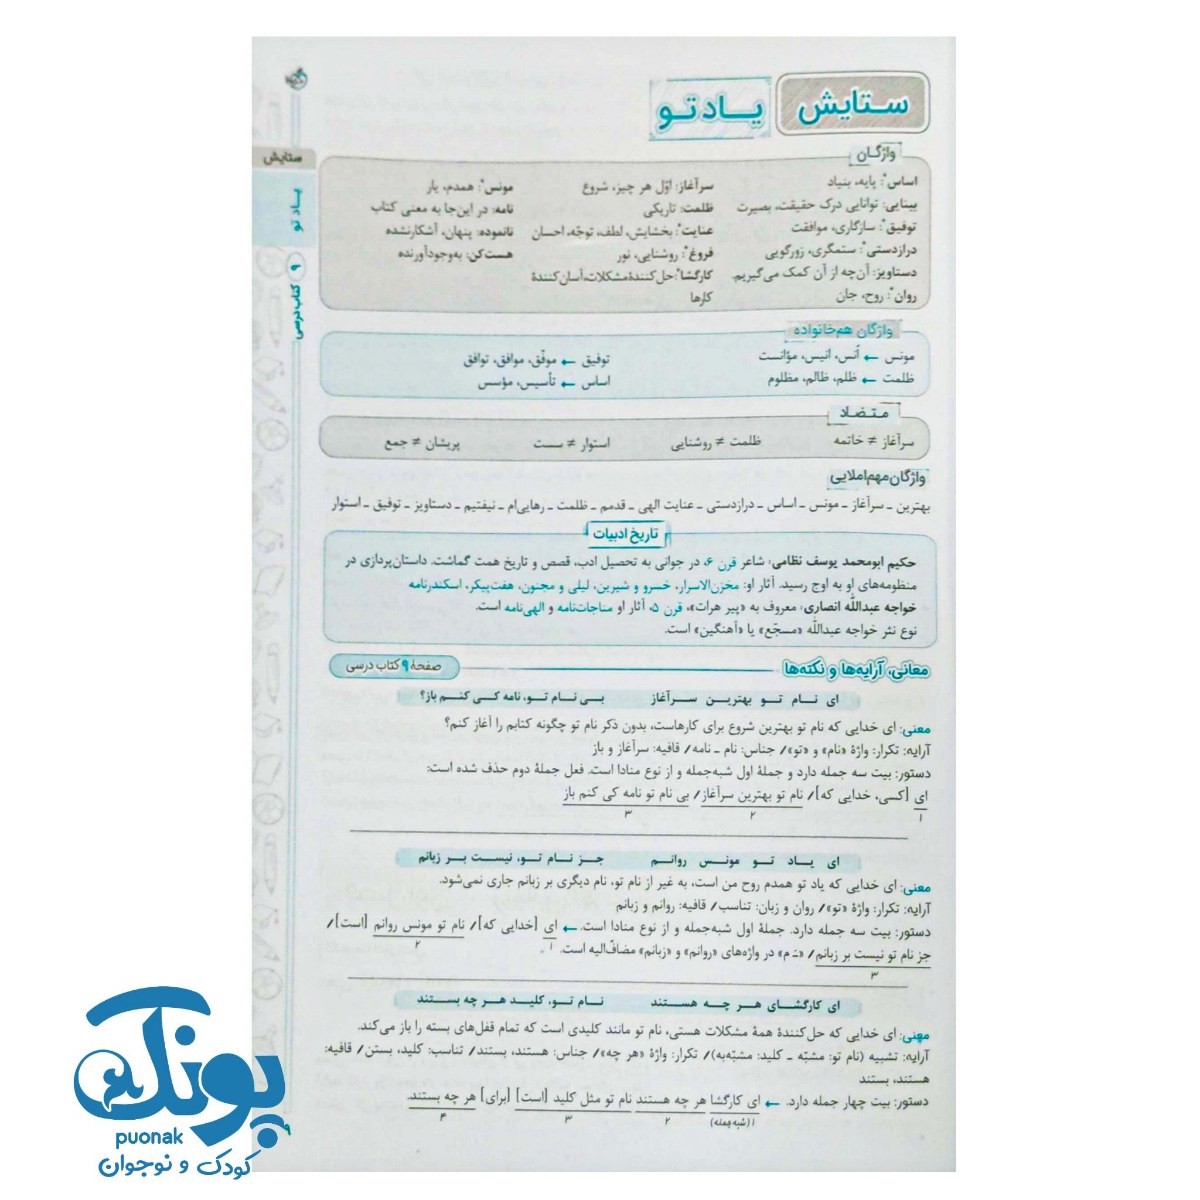 ستایش یاد تو
واژگان
اساس*: پایه، بنیاد
بینایی: توانایی درک حقیقت، بصیرت
توفیق*: سازگاری، موافقت
درازدستی*: ستمگری، زورگویی
دستاویز: آن‌چه از آن کمک می‌گیریم.
روان*: روح، جان
سرآغاز: اوّل هر چیز، شروع
ظلمت: تاریکی
عنایت*: بخشایش، لطف، توجّه، احسان
فروغ*: روشنایی، نور
کارگشا*: حل‌کنندهٔ مشکلات، آسان‌کنندهٔ
کارها
مونس*: همدم، یار
نامه: در این‌جا به معنی کتاب
نانموده: پنهان، آشکارنشده
هست‌کن: به‌وجودآورنده
واژگان هم‌خانواده
مونس ← اُنس، انیس، مؤانست
توفیق ← موفّق، موافق، توافق
ظلمت ← ظلم، ظالم، مظلوم
اساس ← تأسیس، مؤسس
متضاد
سرآغاز ≠ خاتمه ظلمت ≠ روشنایی استوار ≠ سست پریشان ≠ جمع
واژگان مهم املایی
بهترین ـ سرآغاز ـ مونس ـ اساس ـ درازدستی ـ عنایت الهی ـ قدمم ـ ظلمت ـ رهایی‌ام ـ نیفتیم ـ دستاویز ـ توفیق ـ استوار
تاریخ ادبیات
حکیم ابومحمد یوسف نظامی: شاعر قرن ۶، در جوانی به تحصیل ادب، قصص و تاریخ همت گماشت. داستان‌پردازی در
منظومه‌های او به اوج رسید. آثار او: مخزن‌الاسرار، خسرو و شیرین، لیلی و مجنون، هفت‌پیکر، اسکندرنامه
خواجه عبداللّه انصاری: معروف به «پیر هرات»، قرن ۵، آثار او مناجات‌نامه و الهی‌نامه است.
نوع نثر خواجه عبداللّه «مسجّع» یا «آهنگین» است.
معانی، آرایه‌ها و نکته‌ها
صفحهٔ ۹ کتاب درسی
ای نام تو بهترین سرآغاز بی نام تو، نامه کی کنم باز؟
معنی: ای خدایی که نام تو بهترین شروع برای کارهاست، بدون ذکر نام تو چگونه کتابم را آغاز کنم؟
آرایه: تکرار: واژهٔ «نام» و «تو»/ جناس: نام ـ نامه/ قافیه: سرآغاز و باز
دستور: بیت سه جمله دارد و جملهٔ اول شبه‌جمله و از نوع منادا است. فعل جملهٔ دوم حذف شده است:
ای [کسی، خدایی که]/ نام تو بهترین سرآغاز/ بی نام تو نامه کی کنم باز
۱ ۲ ۳
ای یاد تو مونس روانم جز نام تو، نیست بر زبانم
معنی: ای خدایی که یاد تو همدم روح من است، به غیر از نام تو، نام دیگری بر زبانم جاری نمی‌شود.
آرایه: تکرار: واژهٔ «تو»/ روان و زبان: تناسب/ قافیه: روانم و زبانم
دستور: بیت سه جمله دارد. جملهٔ اول شبه‌جمله و از نوع منادا است. ← ای [خدایی که]/ نام تو مونس روانم [است]/
۱ ۲
جز نام تو نیست بر زبانم/ «ـَ م» در واژه‌های «روانم» و «زبانم» مضاف‌الیه است.
۳
ای کارگشای هر چه هستند نام تو، کلید هر چه بستند
معنی: ای خدایی که حل‌کنندهٔ همهٔ مشکلات هستی، نام تو مانند کلیدی است که تمام قفل‌های بسته را باز می‌کند.
آرایه: تشبیه (نام تو: مشبّه ـ کلید: مشبّه‌به)/ تکرار: واژهٔ «هر چه»/ جناس: هستند، بستند/ تناسب: کلید، بستن/ قافیه:
هستند، بستند
دستور: بیت چهار جمله دارد. ← ای کارگشا هر چه هستند نام تو مثل کلید [است] [برای] هر چه بستند.
۱ (شبه جمله) ۲ ۳ ۴
ستایش
یاد تو
۹ کتاب درسی
۹
پونک
puonak
کودک و نوجوان